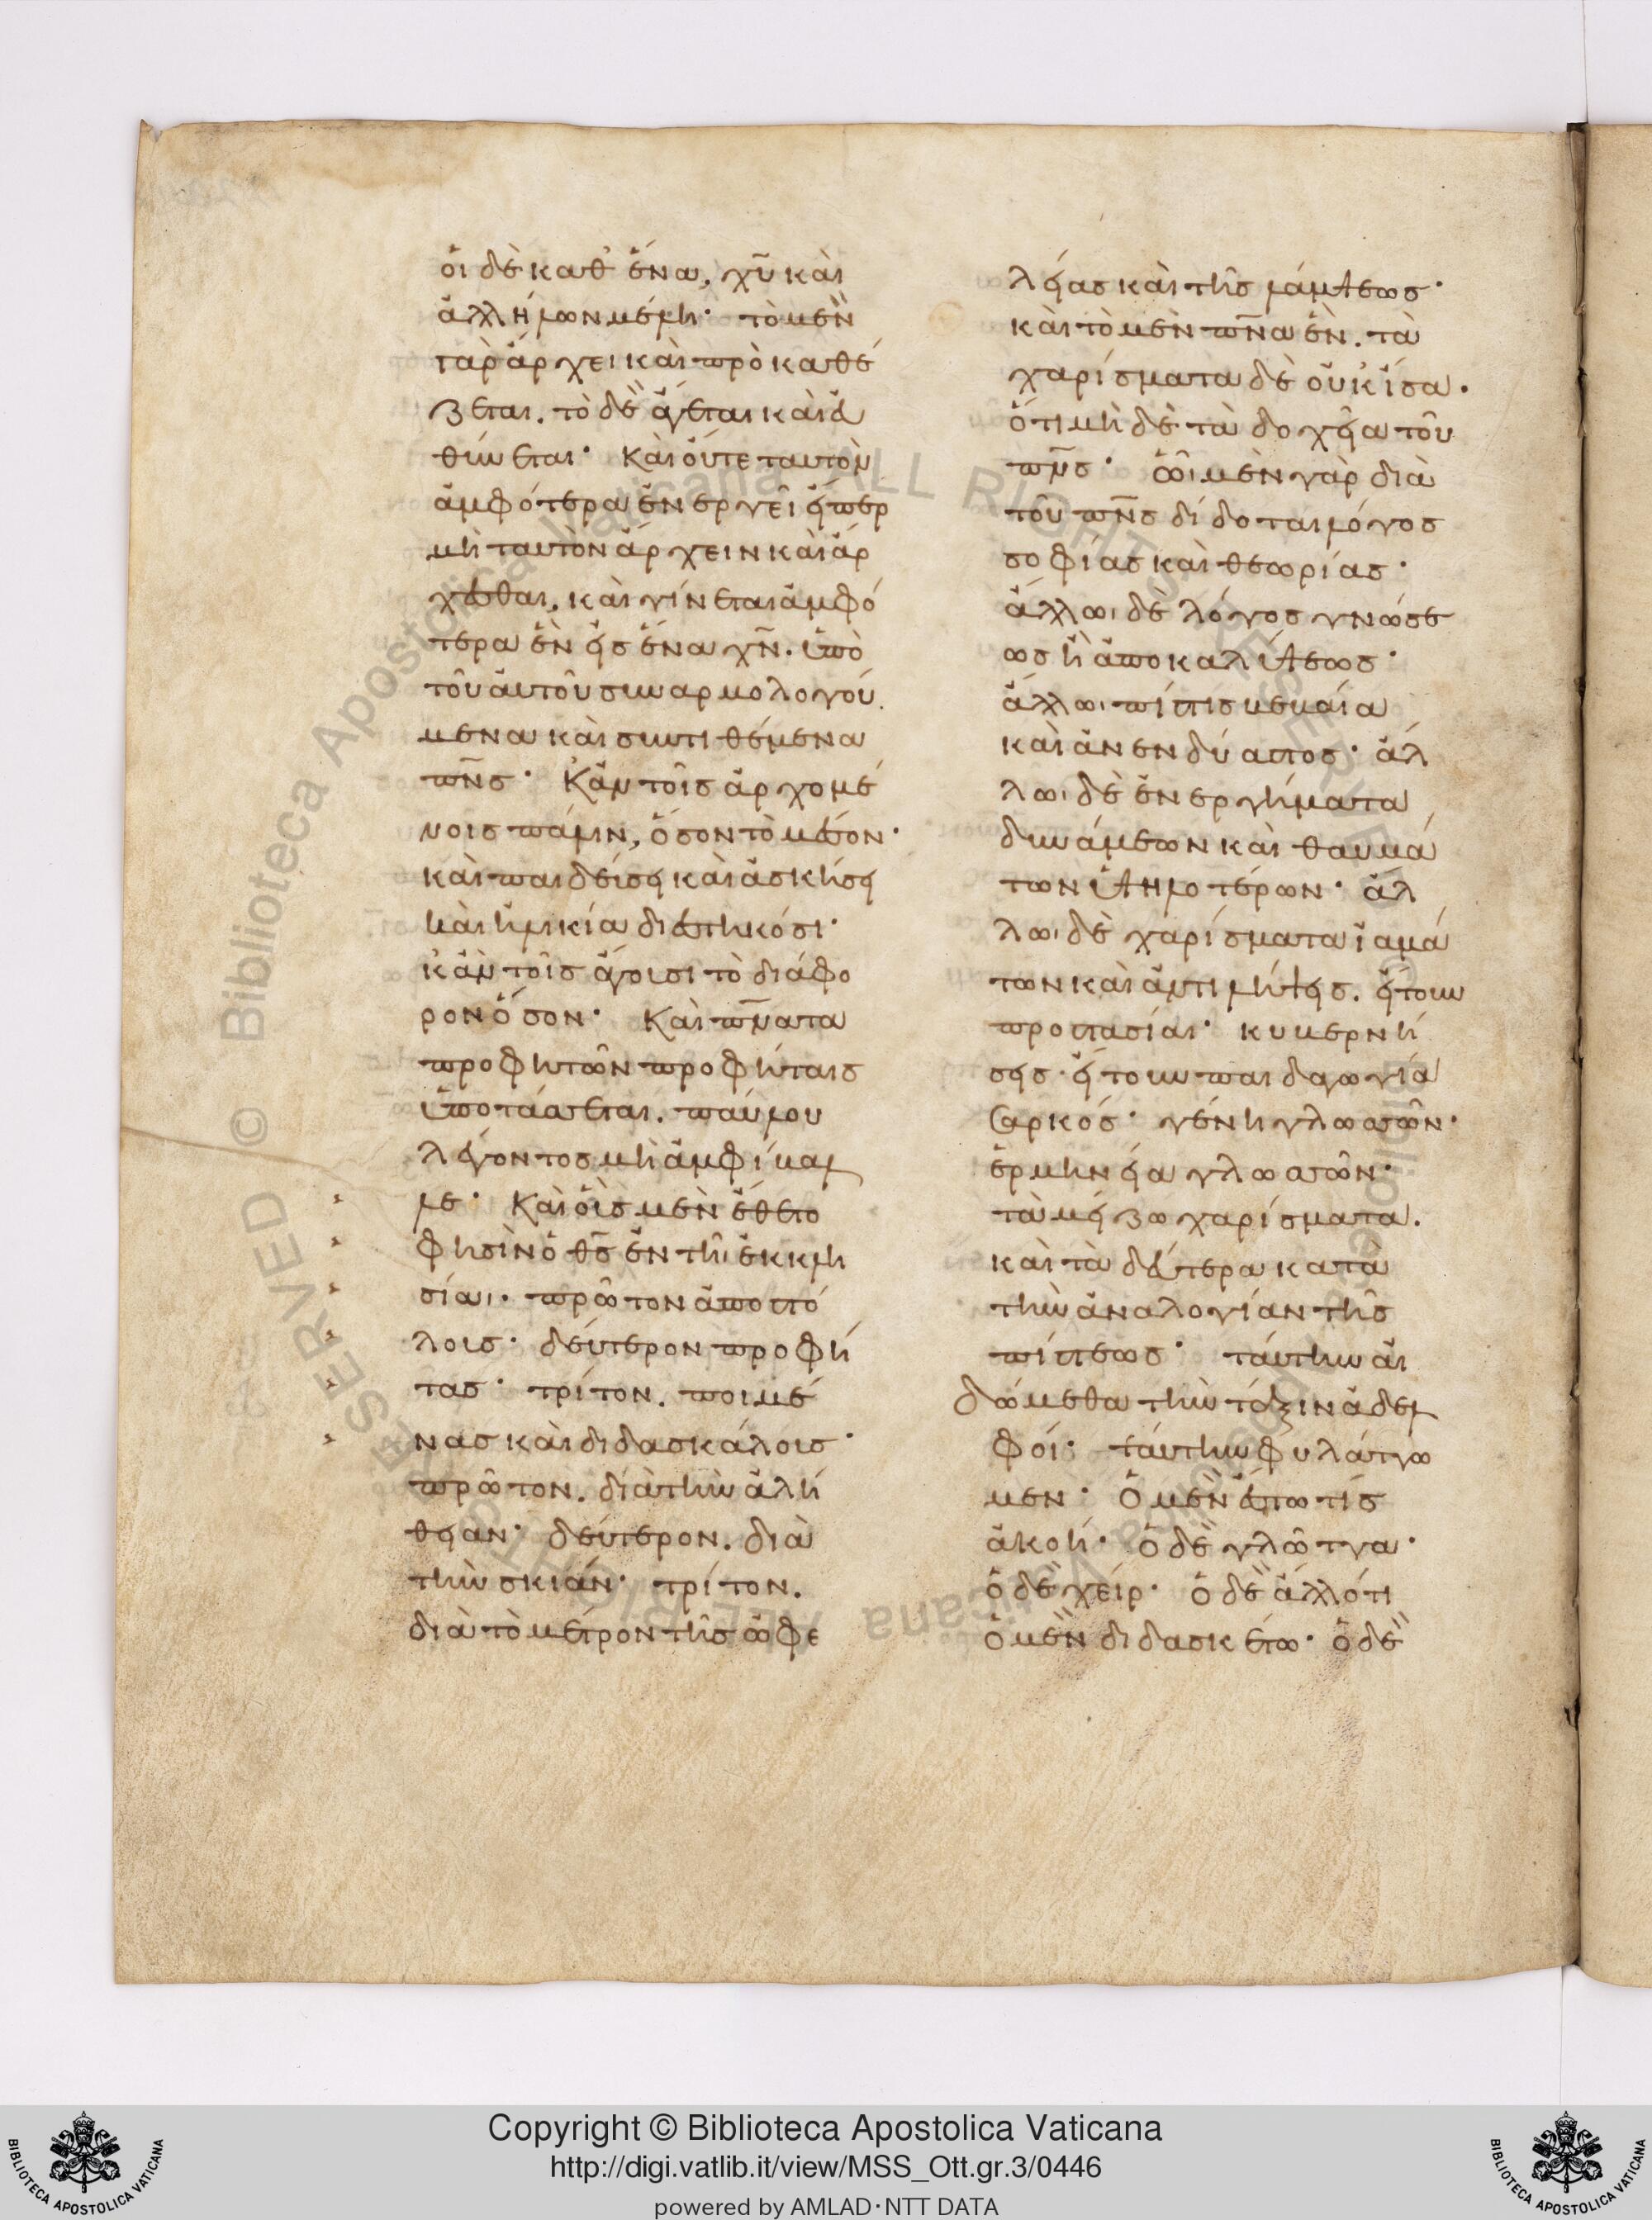 οἱ δὲ καθ' ἕνα, χῦ καὶ
ἀλλήλων μέλη· τὸ μὲν
γὰρ ἄρχει καὶ προκαθέ
ζεται. τὸ δὲ ἄγεται καὶ εὐ
θύνεται· Καὶ οὔτε ταυτὸν
ἀμφότερα ἐνεργεῖ εἴπερ
μὴ ταυτὸν ἄρχειν καὶ ἄρ
χεσθαι, καὶ γίνεται ἀμφό
τερα ἓν εἰς ἕνα χν̄. ὑπὸ
τοῦ αὐτοῦ συναρμολογού
μενα καὶ συντιθέμενα
πν̄ς· Κἀν τοῖς ἀρχομέ
νοις πάλιν, ὅσον τὸ μέσον·
καὶ παιδεύσει καὶ ἀσκήσει
καὶ ἡλικία διεστηκόσι·
κἀν τοῖς ἄγουσι τὸ διάφο
ρον ὅσον· Καὶ πν̄ατα
προφητῶν προφήταις
ὑποτάσσεται. παύλου
λέγοντος μὴ ἀμφίβαλ
λε· Καὶ οἷς μὲν ἔθετο
φησὶν ὁ θς̄ ἐν τῆι ἐκκλη
σίαι. πρῶτον ἀποστό
λοις· δεύτερον προφή
τας· τρίτον. ποιμέ
νας καὶ διδασκάλοις·
πρῶτον. διὰ τὴν ἀλή
θειαν· δεύτερον. διὰ
τὴν σκιάν· τρίτον.
διὰ τὸ μέτρον τῆς ὠφε
λείας καὶ τῆς λάμψεως·
καὶ τὸ μὲν πν̄α ἕν. τὰ
χαρίσματα δὲ οὐκ ἴσα.
ὅτι μὴ δὲ τὰ δοχεῖα τοῦ
πν̄ς· ὧι μὲν γὰρ διὰ
τοῦ πν̄ς δίδοται λόγος
σοφίας καὶ θεωρίας·
ἄλλωι δὲ λόγος γνώσε
ως ἢ ἀποκαλύψεως·
ἄλλωι πίστις βεβαία
καὶ ἀνενδύαστος· ἄλ
λωι δὲ ἐνεργήματα
δυνάμεων καὶ θαυμά
των ὑψηλοτέρων· ἄλ
λωι δὲ χαρίσματα ἰαμά
των καὶ ἀντιλήψεις. εἴτουν
προστασίαι· κυβερνή
σεις· εἴτουν παιδαγωγία
Σαρκός· γένη γλωσσῶν·
ἑρμηνεία γλωσσῶν·
τὰ μείζω χαρίσματα.
καὶ τὰ δεύτερα κατὰ
τὴν ἀναλογίαν τῆς
πίστεως· ταύτην αἰ
δώμεθα τὴν τάξιν ἀδελ
φοί· ταύτην φυλάττω
μεν· Ὁ μὲν ἔστω τις
ἀκοή· Ὁ δὲ γλῶττα·
ὁ δὲ χείρ· ὁ δὲ ἄλλό τι
ὁ μὲν διδασκέτω· ὁ δὲ
Copyright © Biblioteca Apostolica Vaticana
http://digi.vatlib.it/view/MSS_Ott.gr.3/0446
powered by AMLAD·NTT DATA
BIBLIOTECA APOSTOLICA VATICANA
BIBLIOTECA APOSTOLICA VATICANA